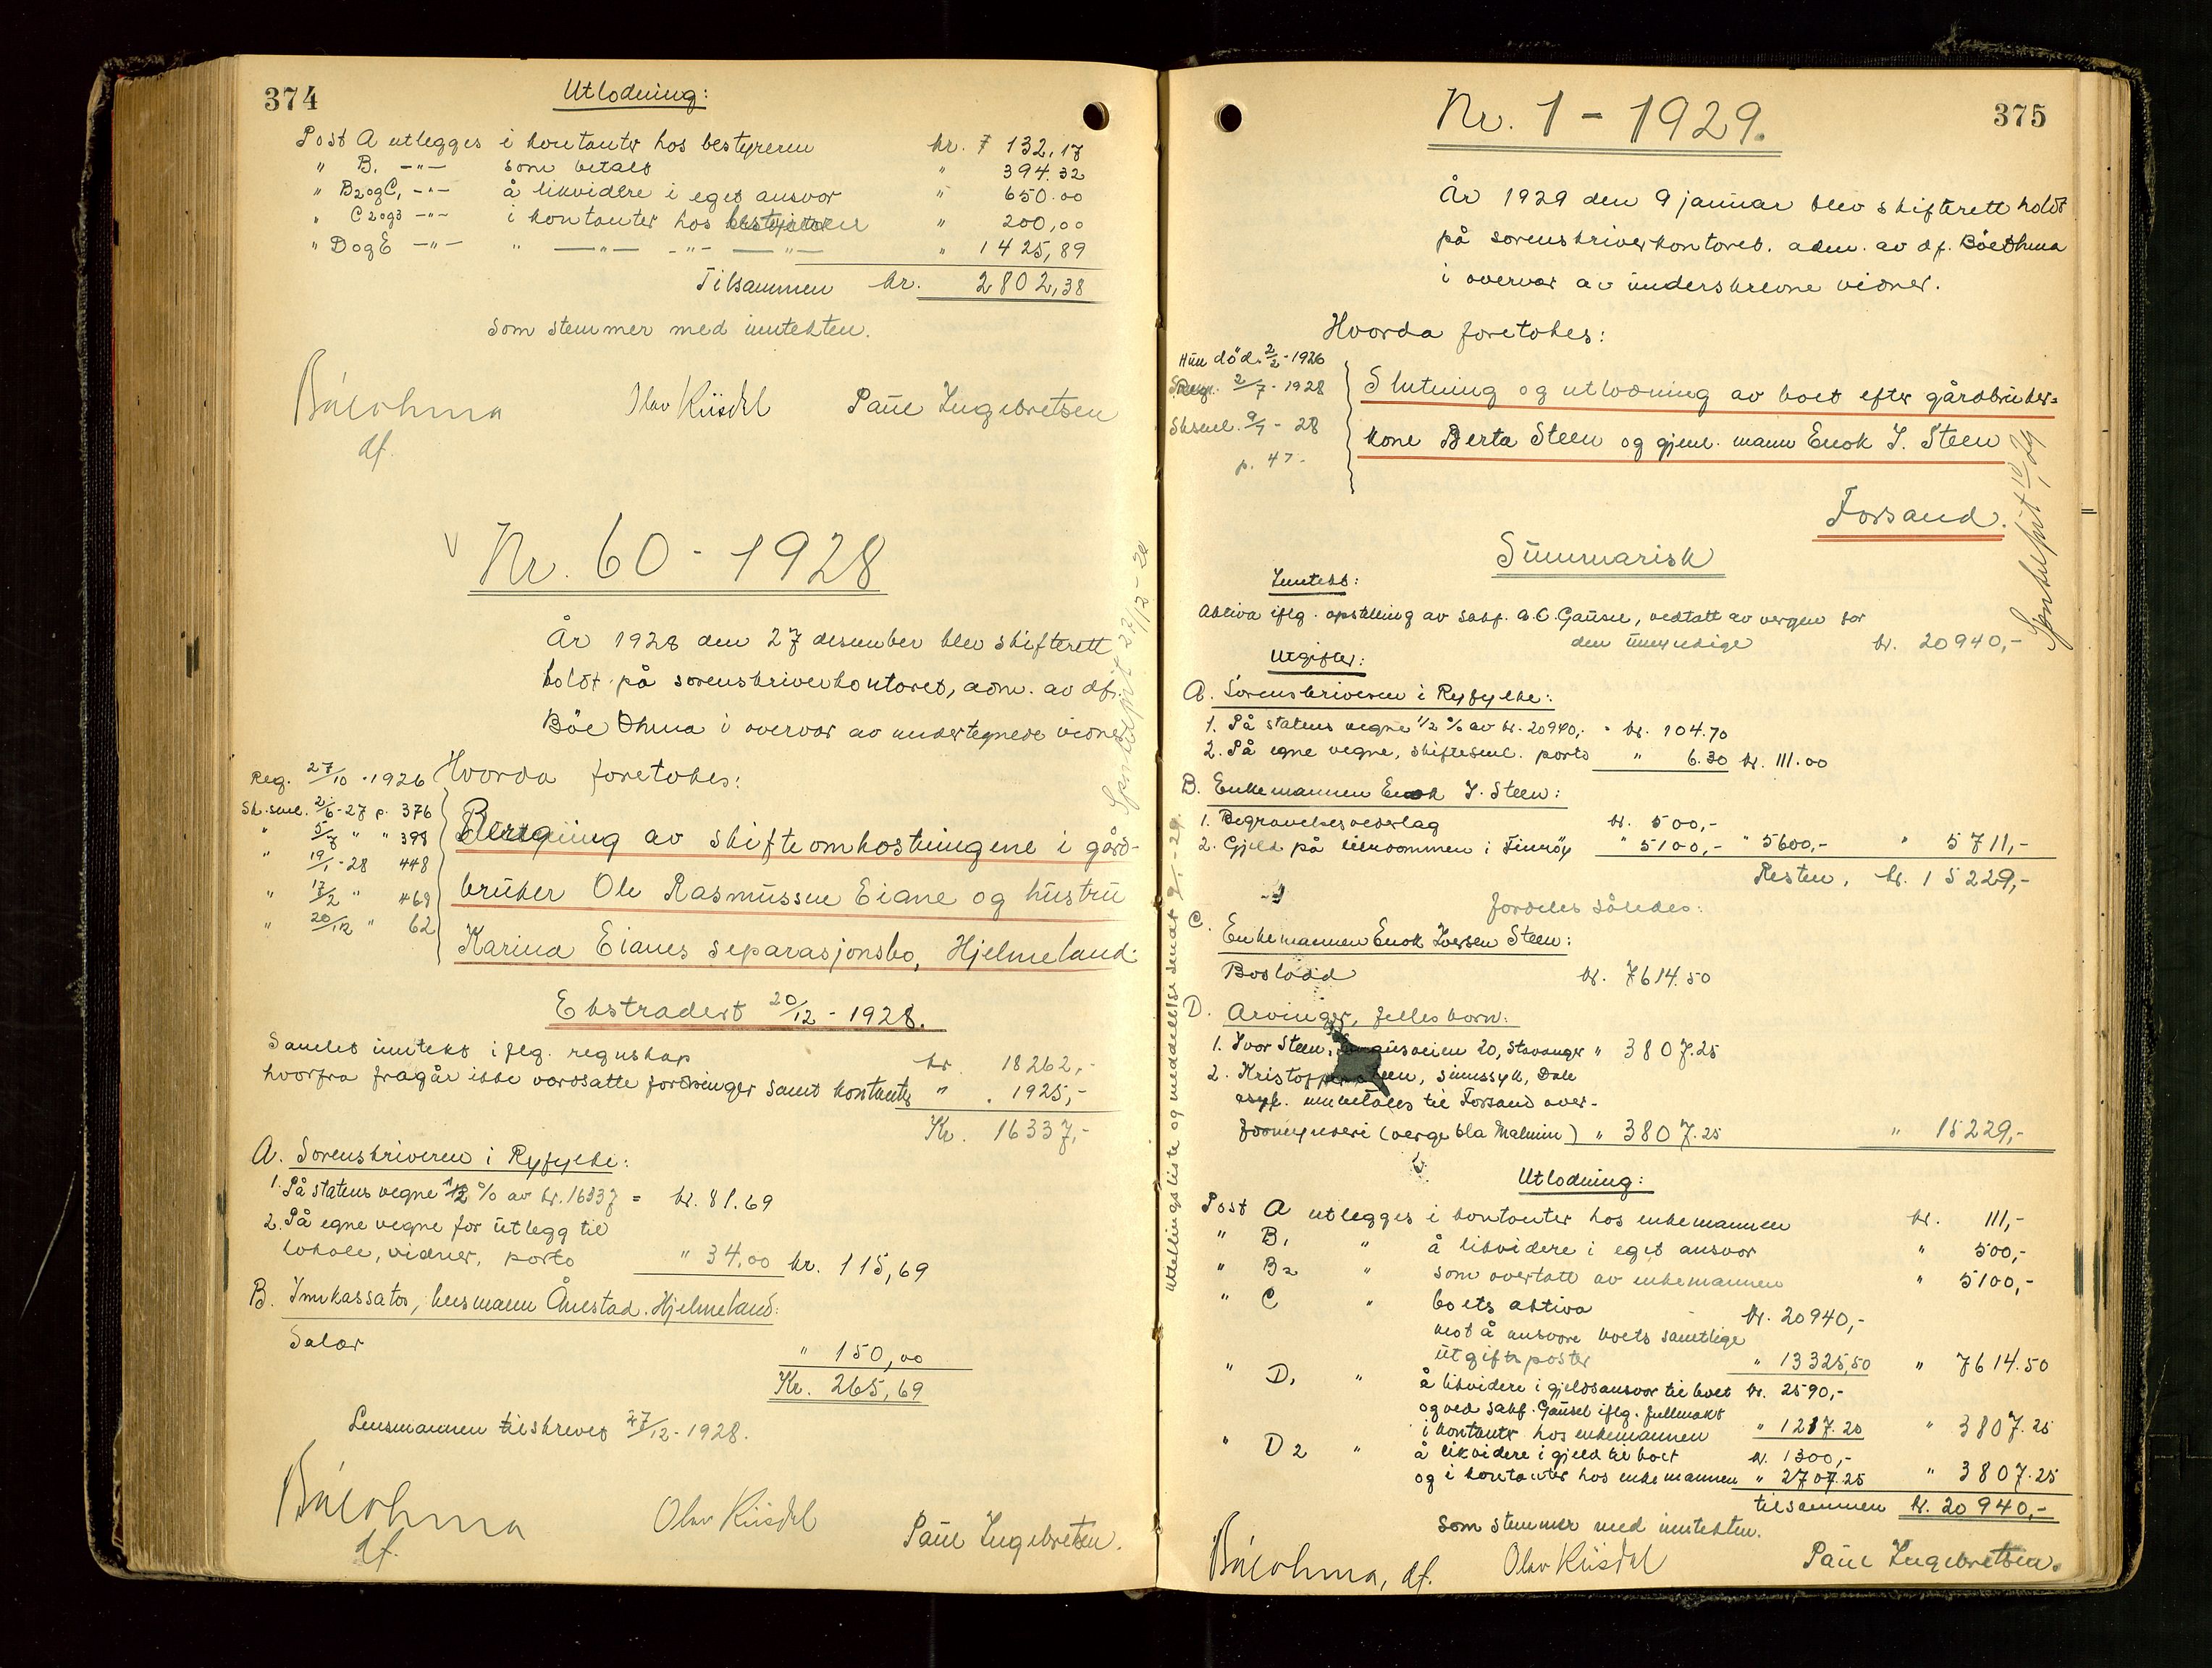 374
Utlodning:
Post A utlegges i kontanter hos bestyreren kr. 132,17
" B. -"- som betalt " 394.32
" B2ogC, -"- å likvidere i eget ansvar " 650.00
" C2og3 -"- i kontanter hos " 200,00
" DogE -"- " -"- -"- -"- " 1425,89
Tilsammen kr. 2802,38
som stemmer med inntekten.
Olav Kiisdal Paul Ingebretsen
df.
Nr. 60 - 1928
År 1928 den 27 desember blev skifterett
holdt på sorenskriverkontoret, adm. av df.
Böe Ohma i overvær av undertegnede vidner
Hvorda foretokes:
Reg. 27/10 - 1926
Sk.saml. 2/6 - 27 p. 376
" 5/7 " " 398
" 19/1 - 28 448
" 17/2 " 469
" 20/12 " 62
av skifteomkostningene i gård-
bruker Ole Rasmussen Eiane og hustru
Karina Eianes separasjonsbo, Hjelmeland.
Ekstradert 20/12 - 1928.
Samlet inntekt iflg. regnskap kr. 18262,-
hvorfra fragår ikke verdsatte fordringer samt kontanter " 1925,-
Kr. 16337,-
A. Sorenskriveren i Ryfylke:
1. På statens vegne 1/2 % av kr. 16337 = kr. 81.69
2. På egne vegne for utlegg til
lokale, vidner, porto " 34,00 kr. 115,69
B. Innkassator, lensmann Ånestad. Hjelmeland:
Salær " 150,00
Kr. 265,69
Lensmannen tilskrevet 27/12 - 1928.
Olav Kiisdal Paul Ingebretsen.
df.
375
Nr. 1 - 1929.
År 1929 den 9 januar blev skifterett holdt
på sorenskriverkontoret. adm. av df. Böe Ohma
i overvær av underskrevne vidner.
Hvorda foretokes:
Hun död. 2/2 - 1926
2/7 - 1928
Sksaml. 9/7 - 28
p. 47.
Slutning og utlodning av boet efter gårdbruker=
kone Berta Steen og gjenl. mann Enok I. Steen
Forsand.
Summarisk
Inntekt:
Aktiva iflg. opstilling av sakf. A.C. Gausel, vedtatt av vergen for
den umyndige kr. 20940,-
Utgifter:
A. Sorenskriveren i Ryfylke:
1. På statens vegne 1/2 % av kr. 20940,- = kr. 104.70
2. På egne vegne, skiftesaml. porto " 6.30 kr. 111.00
B. Enkemannen Enok I. Steen:
1. Begravelsesvederlag kr. 500,-
2. Gjeld på eiendommen i Finnöy " 5100,- " 5600,- " 5711,-
Resten, kr. 15229,-
fordeles således:
C. Enkemannen Enok Iversen Steen:
Boslodd kr. 7614.50
D. Arvinger, felles barn:
1. Ivar Steen, 20, Stavanger " 3807.25
2. Steen, sinnssyk, Dale
asyl. innbetales til Forsand over-
formynderi (verge Ola Malmin) " 3807.25 " 15229,-
Utlodning:
Post A utlegges i kontanter hos enkemannen kr. 111,-
" B1 " å likvidere i eget ansvar " 500,-
" B2 " som overtatt av enkemannen " 5100,-
" C " boets aktiva kr. 20940,-
mot å ansvare boets samtlige
utgiftsposter " 13325,50 " 7614.50
" D1 " å likvidere i gjeldsansvar til boet kr. 2590,-
og ved sakf. Gausel iflg. fullmakt
i kontanter hos enkemannen " 1217.25 " 3807.25
" D2 " å likvidere i gjeld til boet kr. 1300,-
og i kontanter hos enkemannen " 2707.25 " 3807.25
tilsammen kr. 20940,-
som stemmer med inntekten.
df. Olav Kiisdal Paul Ingebretsen.